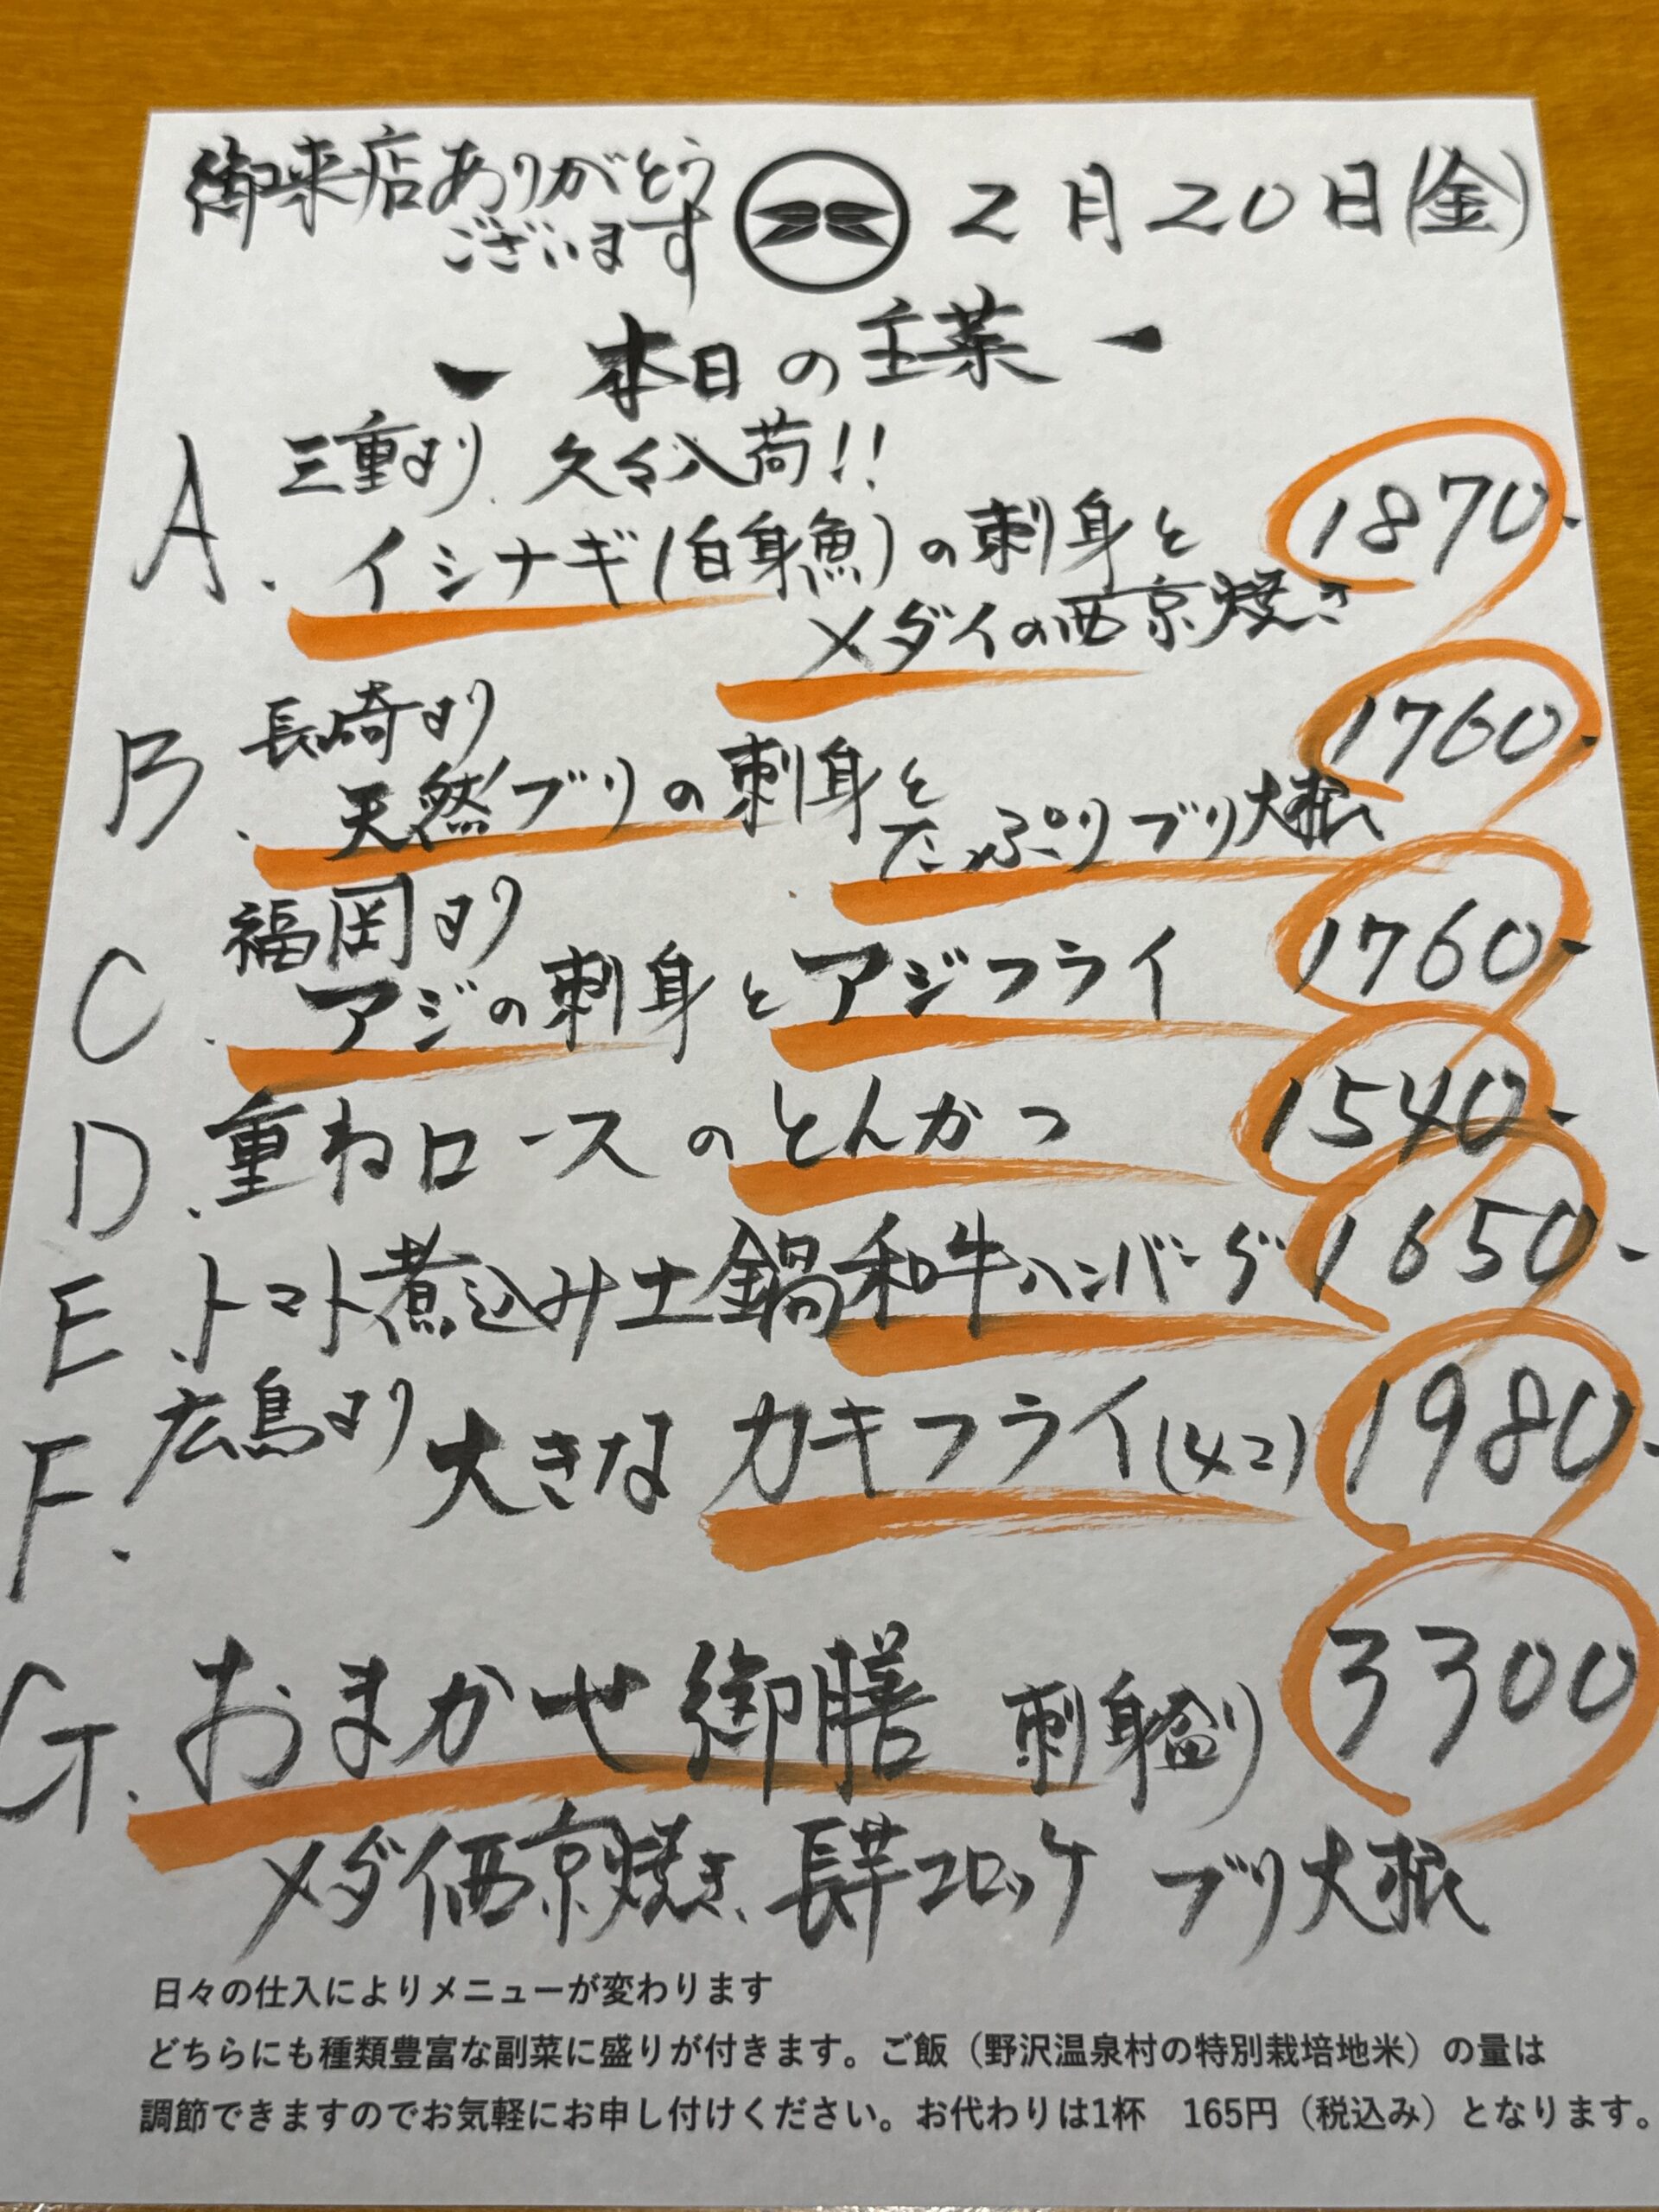 御来店ありがとう
ございます
2月20日(金)
- 本日の主菜 -
A. 三重より 久々入荷!!
イシナギ(白身魚)の刺身と
メダイの西京焼き
1870-
B. 長崎より
天然ブリの刺身と
たっぷりブリ大根
1760-
C. 福岡より
アジの刺身とアジフライ 1760-
D. 重ねロースのとんかつ 1540-
E. トマト煮込み土鍋和牛ハンバーグ 1650-
F. 広島より
大きなカキフライ(4コ) 1980-
G. おまかせ御膳 刺身盛り 3300
メダイ西京焼き、長芋コロッケ ブリ大根
日々の仕入によりメニューが変わります
どちらにも種類豊富な副菜に盛りが付きます。ご飯（野沢温泉村の特別栽培地米）の量は
調節できますのでお気軽にお申し付けください。お代わりは1杯 165円（税込み）となります。